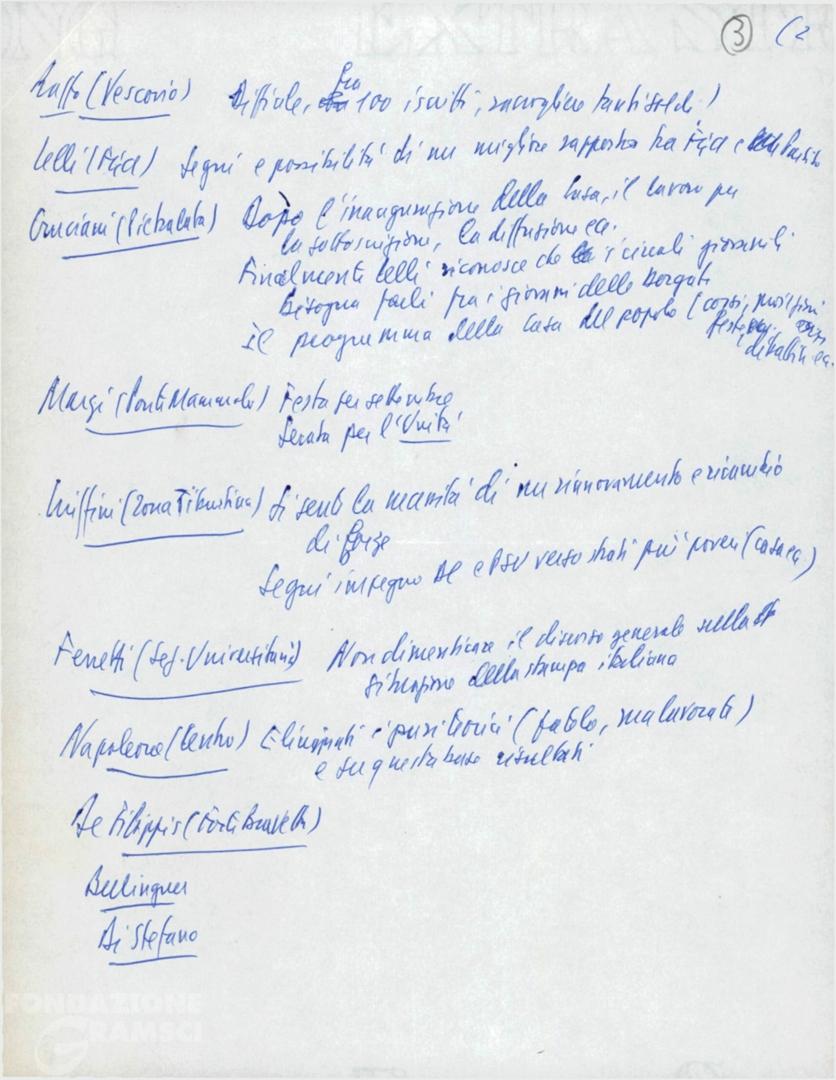 3 (2
Ruffo (Vescovio) Difficile, fra 100 iscritti, raccogliere tanti soldi)
Lelli (Fgci) Segni e possibilità di un migliore rapporto tra Fgci e Partito
Cruciani (Pietralata) Dopo l'inaugurazione della Casa, il lavoro per
la sottoscrizione, la diffusione ec.
Finalmente Lelli riconosce che i circoli giovanili
bisogna farli fra i giovani delle borgate
Il programma della Casa del popolo (corsi, proiezioni
feste,
dibattiti ec.
Margi (Ponte Mammolo) Festa per settembre
Serata per l'Unità
(Zona Tiburtina) Si sente la necessità di un rinnovamento e ricambio
di forze
Segni impegno DC e PSU verso strati più poveri (casa ec.)
Ferretti (Sez. Universitaria) Non dimenticare il discorso generale sulla
situazione della stampa italiana
Napoleone (Centro) Eliminati i pesi teorici (
e su questa base risultati
De Filippis (Forte Bravetta)
Berlinguer
Di Stefano
FONDAZIONE
GRAMSCI